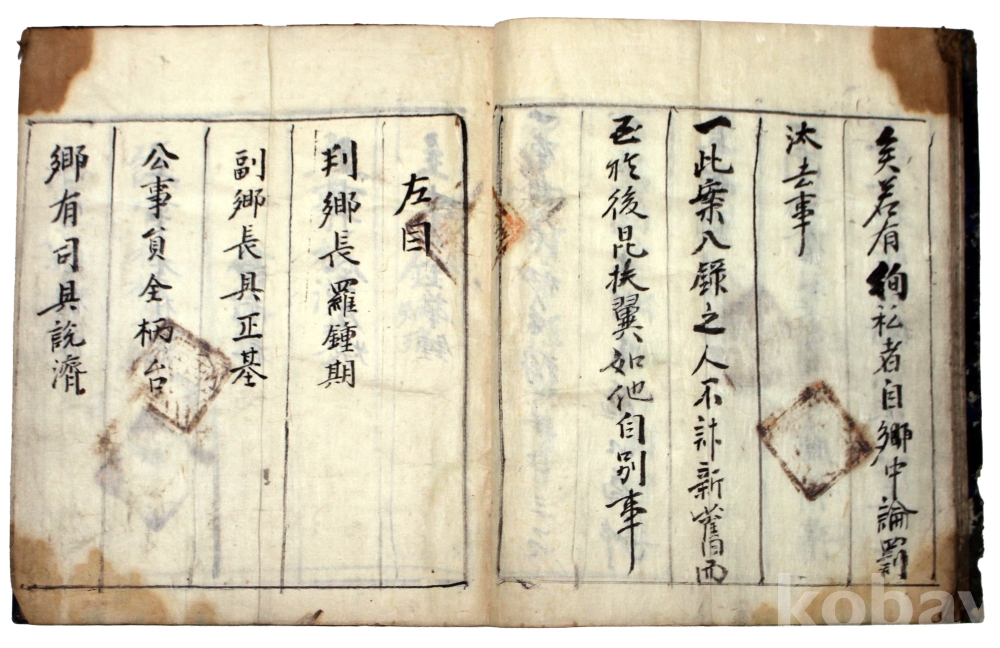 矣若有徇私者自鄕中論罰
汰去事
一此案入錄之人不計新舊而
至於後昆扶翼如他自別事
左目
判鄕長羅鍾期
副鄕長具正基
公事員全柄台
鄕有司具說濟
kobay